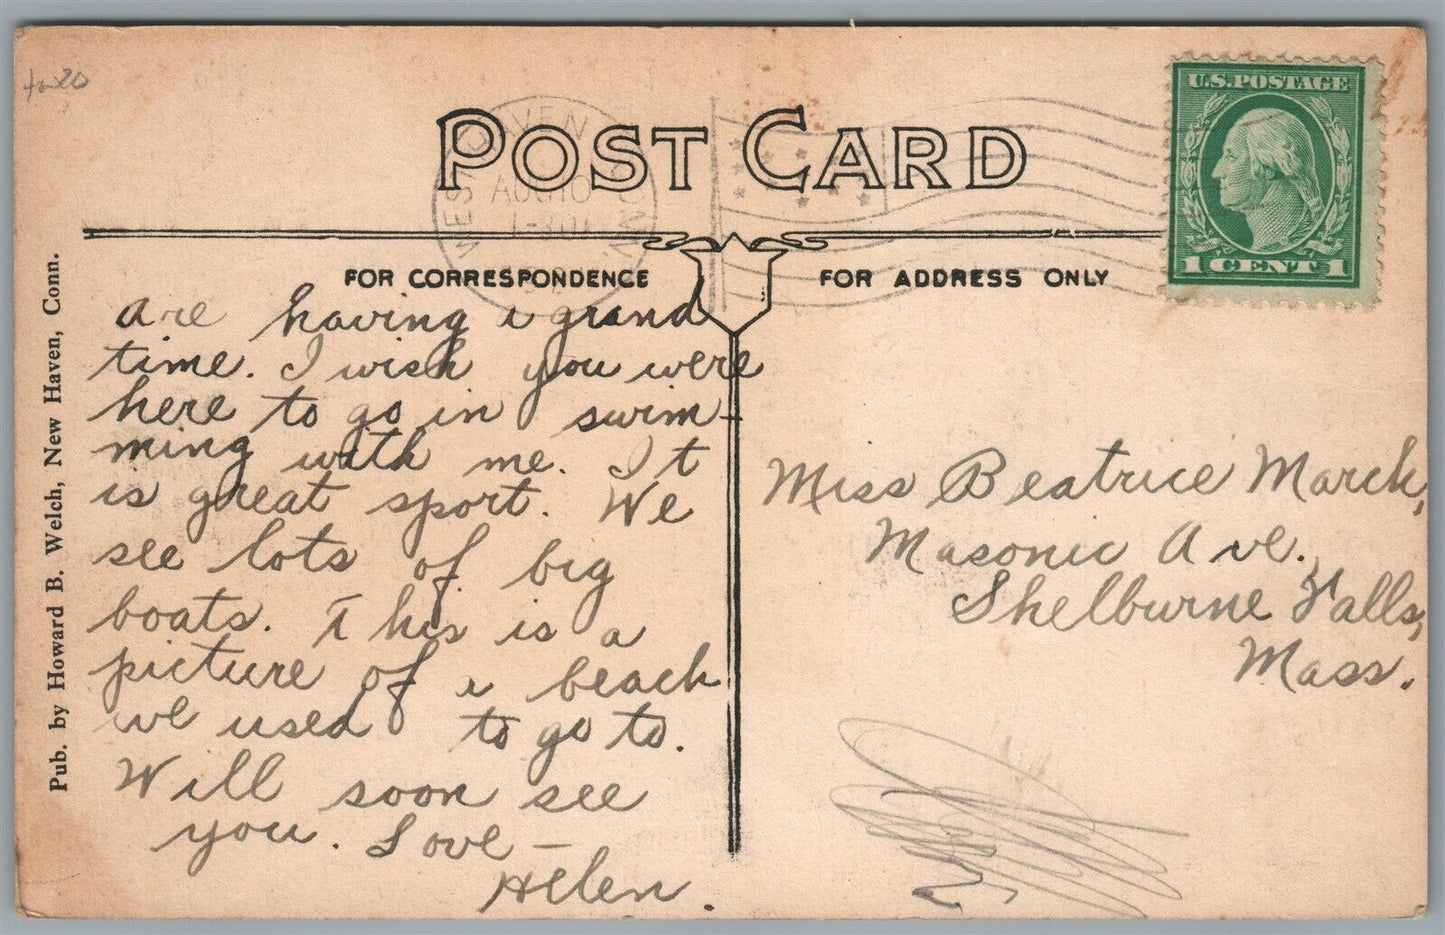 POST CARD
U.S. POSTAGE
1 CENT 1
HAVEN
AUG 10
FOR CORRESPONDENCE
FOR ADDRESS ONLY
Pub. by Howard B. Welch, New Haven, Conn.
are having a grand
time. I wish you were
here to go in swim-
ming with me. It
is great sport. We
see lots of big
boats. This is a
picture of a beach
we used to go to.
Will soon see
you. Love –
Helen.
Miss Beatrice March,
Masonic Ave.,
Shelburne Falls,
Mass.